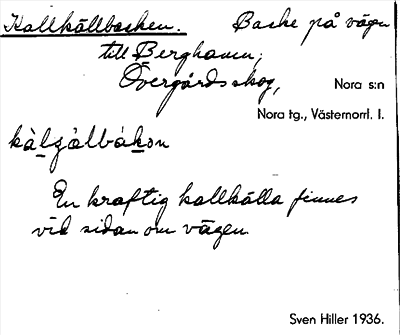 Kallkällbacken. Backe på vägen
till Berghamn,
Övergårds skog, Nora s:n
Nora tg., Västernorrl. l.
kàlɡálbákɔn
En kraftig kallkälla finnes
vid sidan om vägen
Sven Hiller 1936.